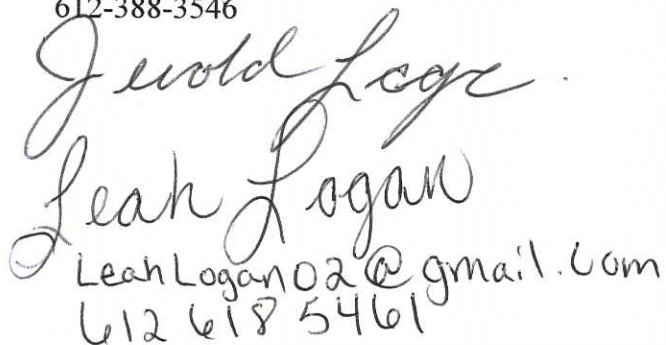 612-388-3546
Jerold Loga
Leah Logan
LeahLogan02@gmail.com
612 618 5461